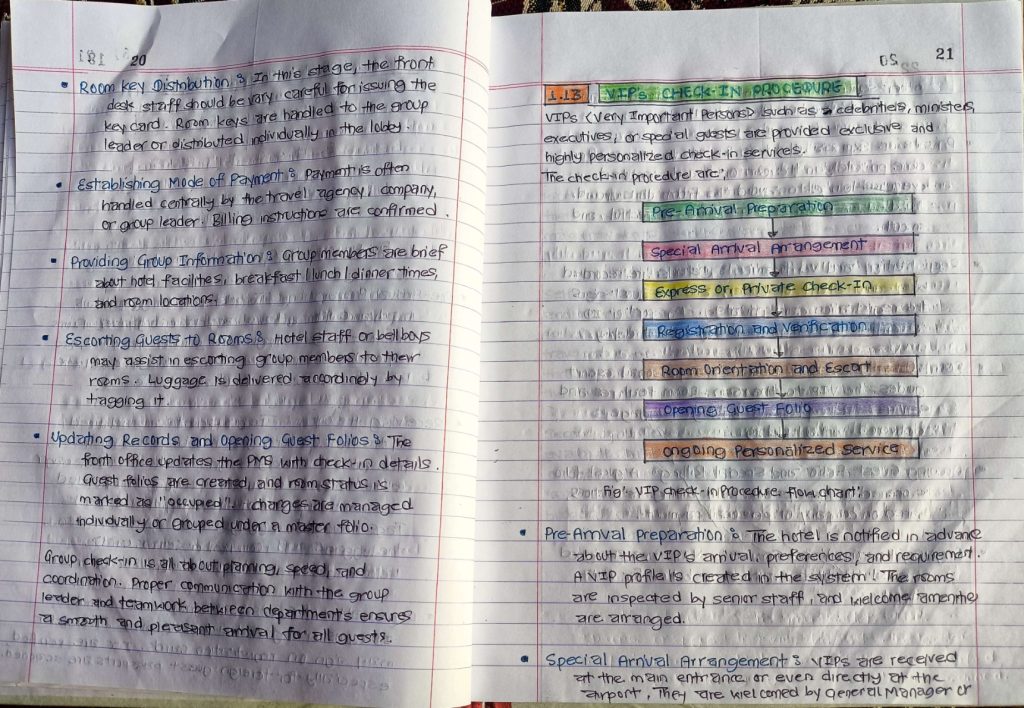 20
• Room Key Distribution : In this stage, the front
desk staff should be vary careful for issuing the
key card. Room keys are handled to the group
leader or distributed individually in the lobby.
• Establishing Mode of Payment : Payment is often
handled centrally by the travel agency, company,
or group leader. Billing instructions are confirmed.
• Providing Group Information : Group members are brief
about hotel facilities, breakfast/lunch/dinner times,
and room locations.
• Escorting Guests to Rooms : Hotel staff or bellboys
may assist in escorting group members to their
rooms. Luggage is delivered accordingly by
tagging it.
• Updating Records and Opening Guest Folios : The
front office updates the PMS with check-in details.
Guest folios are created, and room status is
marked as "occupied". charges are managed
individually or grouped under a master folio.
Group check-in is all about planning, speed, and
coordination. Proper communication with the group
leader and teamwork between department's ensures
a smooth and pleasant arrival for all guests.
21
1.13 VIPs CHECK-IN PROCEDURE
VIPs (Very Important Persons) such as celebrities, ministers,
executives, or special guests are provided exclusive and
highly personalized check-in services.
The check-in procedure are:
Pre-Arrival Preparation
Special Arrival Arrangement
Express or Private Check-In
Registration and Verification
Room Orientation and Escort
Opening Guest Folio
Ongoing Personalized Service
Fig: VIP check-in Procedure flow chart:
• Pre-Arrival Preparation : The hotel is notified in advance
about the VIP's arrival, preferences, and requirement.
A VIP profile is created in the system. The rooms
are inspected by senior staff, and welcome amenitie
are arranged.
• Special Arrival Arrangement : VIPs are received
at the main entrance or even directly at the
airport, They are welcomed by General Manager or